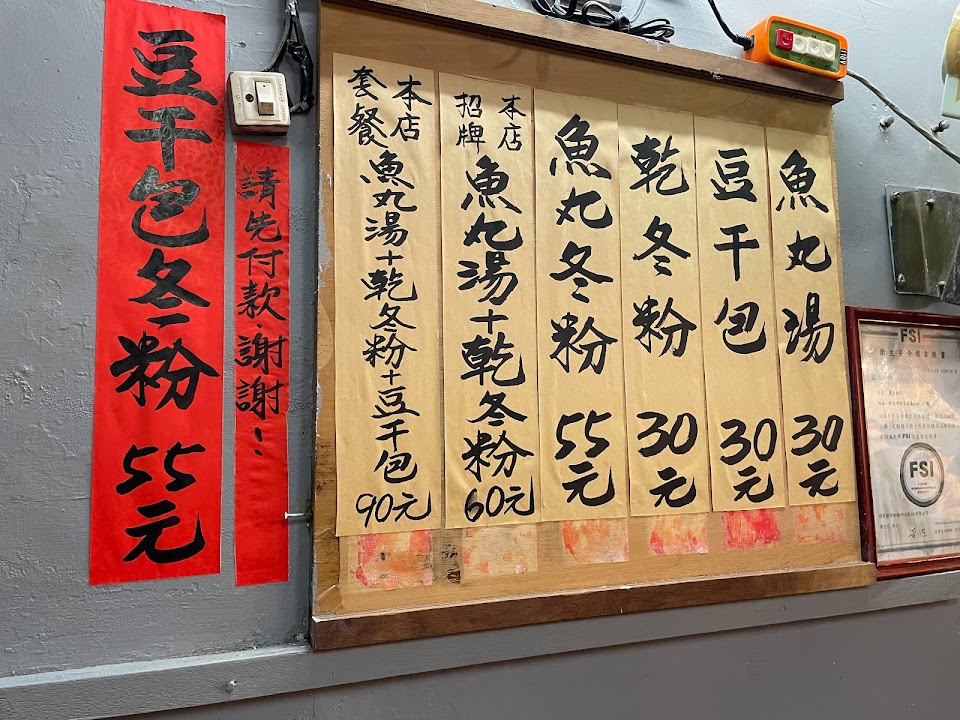 魚丸湯 30元
豆干包 30元
乾冬粉 30元
魚丸冬粉 55元
本店
招牌
魚丸湯+乾冬粉 60元
本店
套餐
魚丸湯+乾冬粉+豆干包 90元
請先付款.謝謝!
豆干包冬粉 55元
FSI
FSI